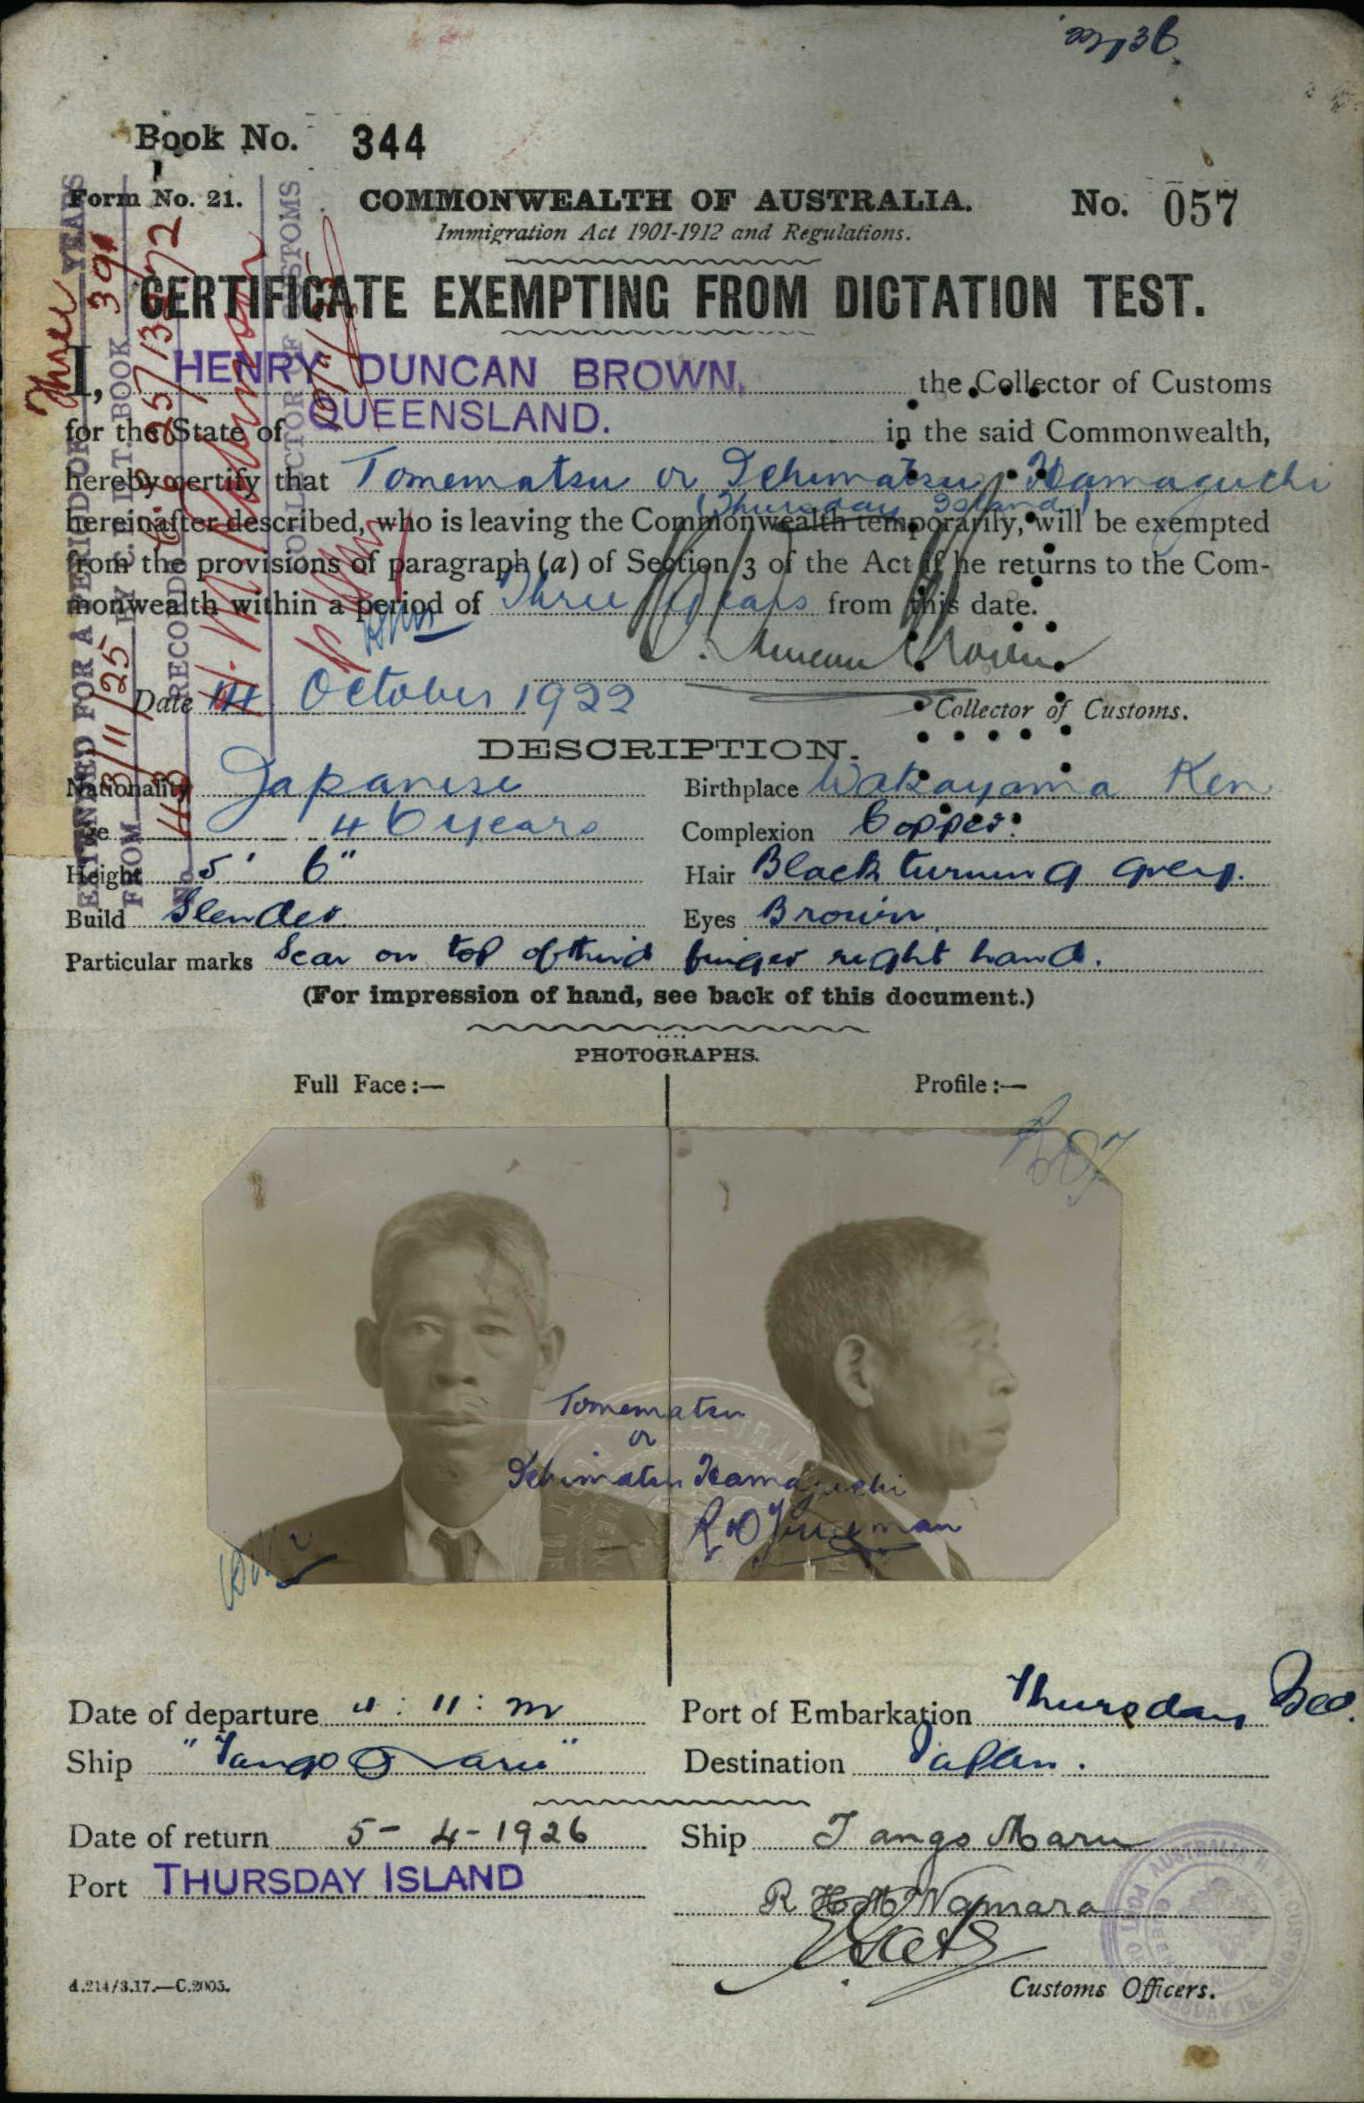 Book No. 344
Form No. 21.
COMMONWEALTH OF AUSTRALIA.
No. 057
Immigration Act 1901-1912 and Regulations.
CERTIFICATE EXEMPTING FROM DICTATION TEST.
I, HENRY DUNCAN BROWN, the Collector of Customs
for the State of QUEENSLAND. in the said Commonwealth,
hereby certify that Tomematsu or Ichimatsu Hamaguchi
(Thursday Island)
hereinafter described, who is leaving the Commonwealth temporarily, will be exempted
from the provisions of paragraph (a) of Section 3 of the Act if he returns to the Com-
monwealth within a period of Three Years from this date.
H. Duncan Brown
Date October 1922
Collector of Customs.
EXTENDED FOR A PERIOD OF Three YEARS
FROM 3/11/25 BY C.E.D.T. BOOK 391
RECORD
COLLECTOR OF CUSTOMS
DESCRIPTION.
Nationality Japanese
Birthplace Wakayama Ken
Age 46 years
Complexion Copper.
Height 5' 6"
Hair Black turning grey.
Build Slender
Eyes Brown
Particular marks Scar on top of third finger right hand.
(For impression of hand, see back of this document.)
PHOTOGRAPHS.
Full Face:—
Profile:—
Tomematsu
or
Ichimatsu Hamaguchi
Date of departure
Port of Embarkation Thursday Isld.
Ship "Tango Maru"
Destination Japan.
Date of return 5-4-1926
Ship Tango Maru
Port THURSDAY ISLAND
R H McNamara
Customs Officers.